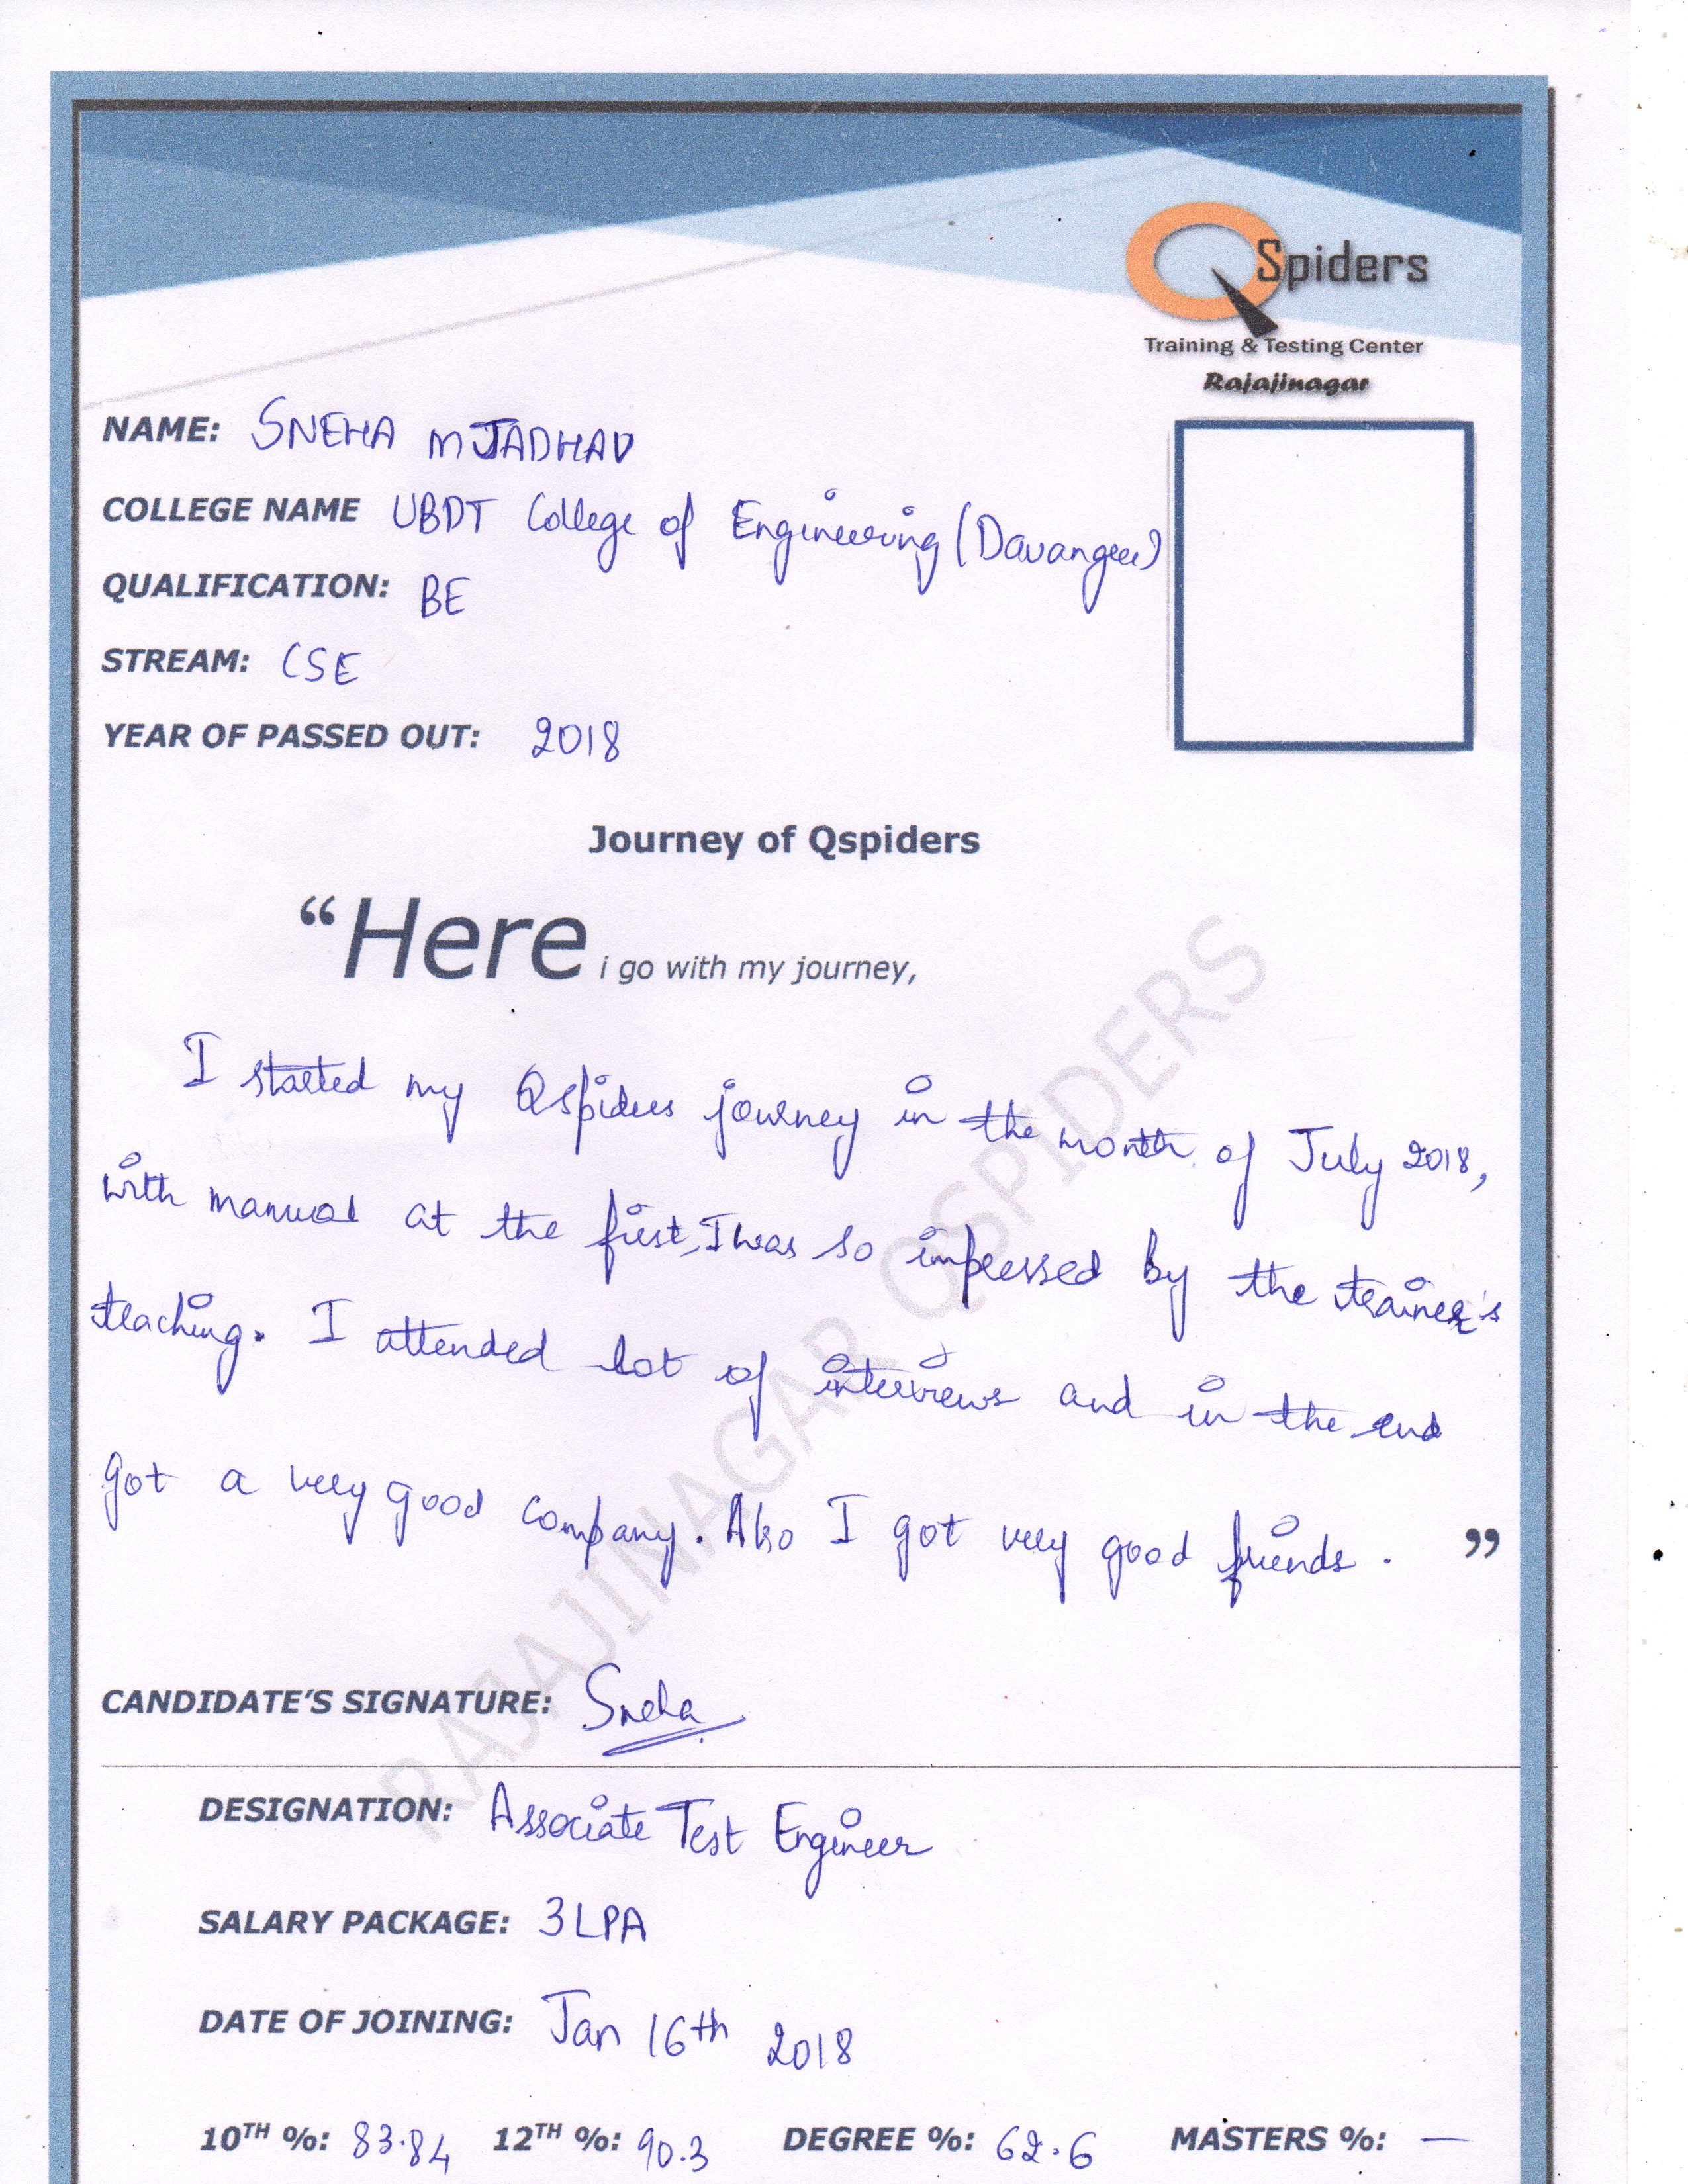 QSpiders
Training & Testing Center
Rajajinagar
NAME: SNEHA M JADHAV
COLLEGE NAME UBDT College of Engineering (Davangere)
QUALIFICATION: BE
STREAM: CSE
YEAR OF PASSED OUT: 2018
Journey of Qspiders
“Here i go with my journey,
I started my Qspiders journey in the month of July 2018,
with manual at the first, I was so impressed by the trainer's
teaching. I attended lot of interviews and in the end
got a very good company. Also I got very good friends. ”
RAJAJINAGAR QSPIDERS
CANDIDATE’S SIGNATURE: Sneha
DESIGNATION: Associate Test Engineer
SALARY PACKAGE: 3LPA
DATE OF JOINING: Jan 16th 2018
10TH %: 83.84 12TH %: 90.3 DEGREE %: 62.6 MASTERS %: —